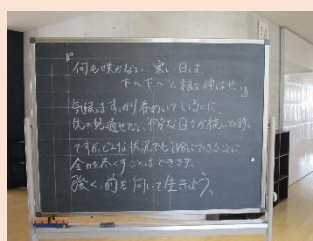 『何も咲かない 寒い日は
下へ下へと 根を伸ばせ。』
気候はすっかり春めいているのに、
先の見通せない、不安な日々が続いています。
ですが、どんな状況でも自分にできることに
全力を尽くすことはできます。
強く、前を向いて生きよう。